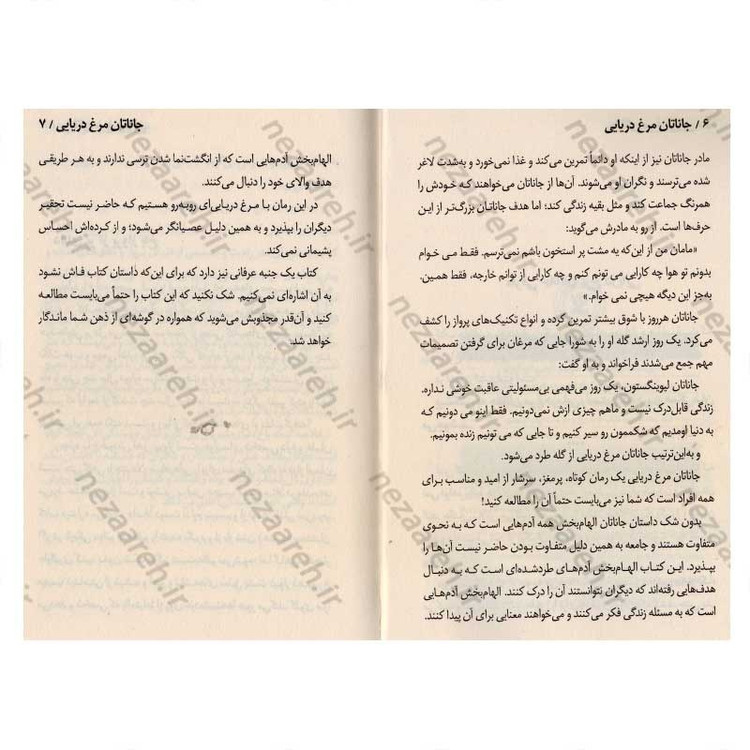 ۶ / جاناتان مرغ دریایی
مادر جاناتان نیز از اینکه او دائماً تمرین می‌کند و غذا نمی‌خورد و به‌شدت لاغر
شده می‌ترسند و نگران او می‌شوند. آن‌ها از جاناتان می‌خواهند که خودش را
همرنگ جماعت کند و مثل بقیه زندگی کند؛ اما هدف جاناتان بزرگ‌تر از این
حرف‌ها است. از رو به مادرش می‌گوید:
«مامان من از این‌که یه مشت پر استخون باشم نمی‌ترسم. فقط می خوام
بدونم تو هوا چه کارایی می تونم کنم و چه کارایی از توانم خارجه، فقط همین.
به‌جز این دیگه هیچی نمی خوام.»
جاناتان هرروز با شوق بیشتر تمرین کرده و انواع تکنیک‌های پرواز را کشف
می‌کرد. یک روز ارشد گله او را به شورا جایی که مرغان برای گرفتن تصمیمات
مهم جمع می‌شدند فراخواند و به او گفت:
جاناتان لیوینگستون، یک روز می‌فهمی بی‌مسئولیتی عاقبت خوشی نداره.
زندگی قابل‌درک نیست و ماهم چیزی ازش نمی‌دونیم. فقط اینو می دونیم که
به دنیا اومدیم که شکممون رو سیر کنیم و تا جایی که می تونیم زنده بمونیم.
و به‌این‌ترتیب جاناتان مرغ دریایی از گله طرد می‌شود.
جاناتان مرغ دریایی یک رمان کوتاه، پرمغز، سرشار از امید و مناسب برای
همه افراد است که شما نیز می‌بایست حتماً آن را مطالعه کنید!
بدون شک داستان جاناتان الهام‌بخش همه آدم‌هایی است که به نحوی
متفاوت هستند و جامعه به همین دلیل متفاوت بودن حاضر نیست آن‌ها را
بپذیرد. این کتاب الهام‌بخش آدم‌های طردشده‌ای است که به دنبال
هدف‌هایی رفته‌اند که دیگران نتوانستند آن را درک کنند. الهام‌بخش آدم‌هایی
است که به مسئله زندگی فکر می‌کنند و می‌خواهند معنایی برای آن پیدا کنند.
جاناتان مرغ دریایی / ۷
الهام‌بخش آدم‌هایی است که از انگشت‌نما شدن ترسی ندارند و به هر طریقی
هدف والای خود را دنبال می‌کنند.
در این رمان با مرغ دریایی‌ای روبه‌رو هستیم که حاضر نیست تحقیر
دیگران را بپذیرد و به همین دلیل عصیانگر می‌شود؛ و از کرده‌اش احساس
پشیمانی نمی‌کند.
کتاب یک جنبه عرفانی نیز دارد که برای این‌که داستان کتاب فاش نشود
به آن اشاره‌ای نمی‌کنیم. شک نکنید که این کتاب را حتماً می‌بایست مطالعه
کنید و آن‌قدر مجذوبش می‌شوید که همواره در گوشه‌ای از ذهن شما ماندگار
خواهد شد.
nezaareh.ir
nezaareh.ir
nezaareh.ir
nezaareh.ir
nezaareh.ir
nezaareh.ir
nezaareh.ir